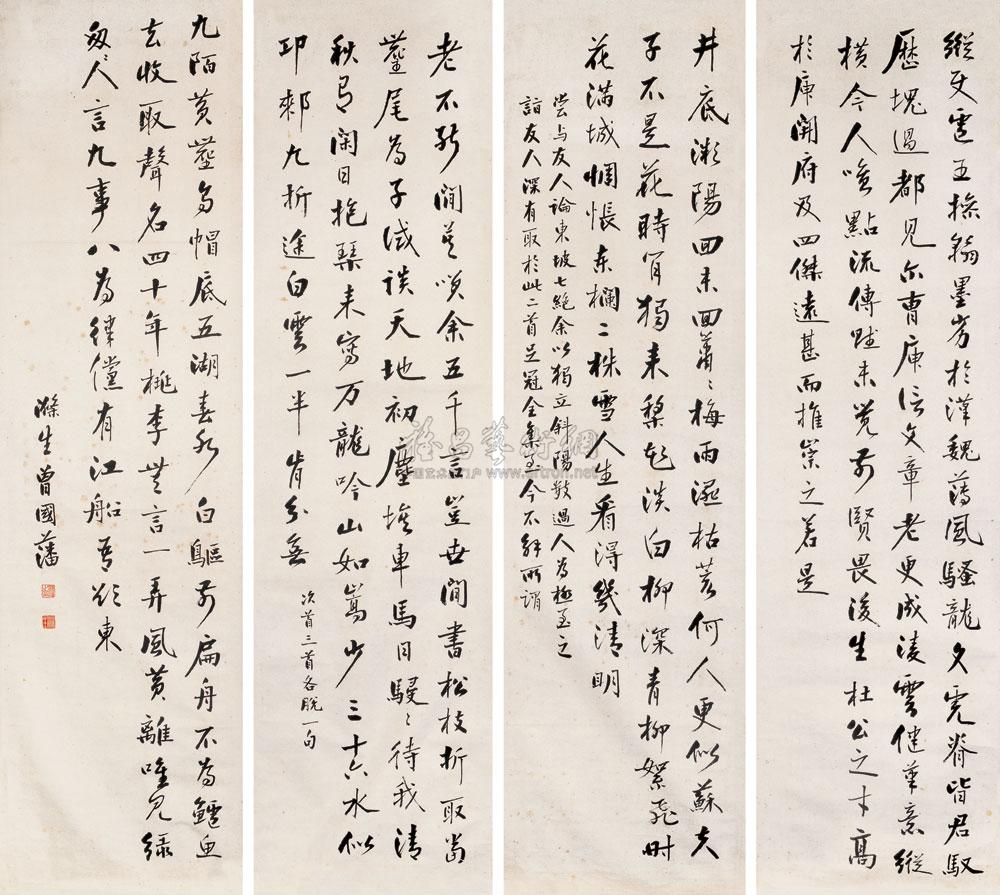 縱使盧王操翰墨劣於漢魏薄風騷龍文虎脊皆君馭
歷塊過都見尔曹庾信文章老更成凌雲健筆意縱
橫今人嗤點流傳賦未覺前賢畏後生杜公之才高
於庾開府及四傑遠甚而推崇之若是
井底微陽回未回蕭〻梅雨濕枯荄何人更似蘇夫
子不是花時肯獨来梨花淡白柳深青柳絮飛時
花滿城惆悵东欄二株雪人生看得幾清明
嘗与友人論東坡七絕余以獨立斜陽數過人為極至之
詣友人深有取於此二首足冠全集至今不解所謂
老不余五千言豈世間書松枝折取當
麈尾為子试談天地初塵埃車馬日駸〻待我清
秋有閑日抱琴来寫万龍吟山如嵩少三十六水似
邛郲九折途白雲一半肯分無
次首三首各脫一句
九陌黃塵烏帽底五湖春水白鷗前扁舟不為鱸魚
去收取聲名四十年桃李無言一再風黃離唯見綠
匆〻人言九事八為律儻有江船吾欲東
滌生曾國藩